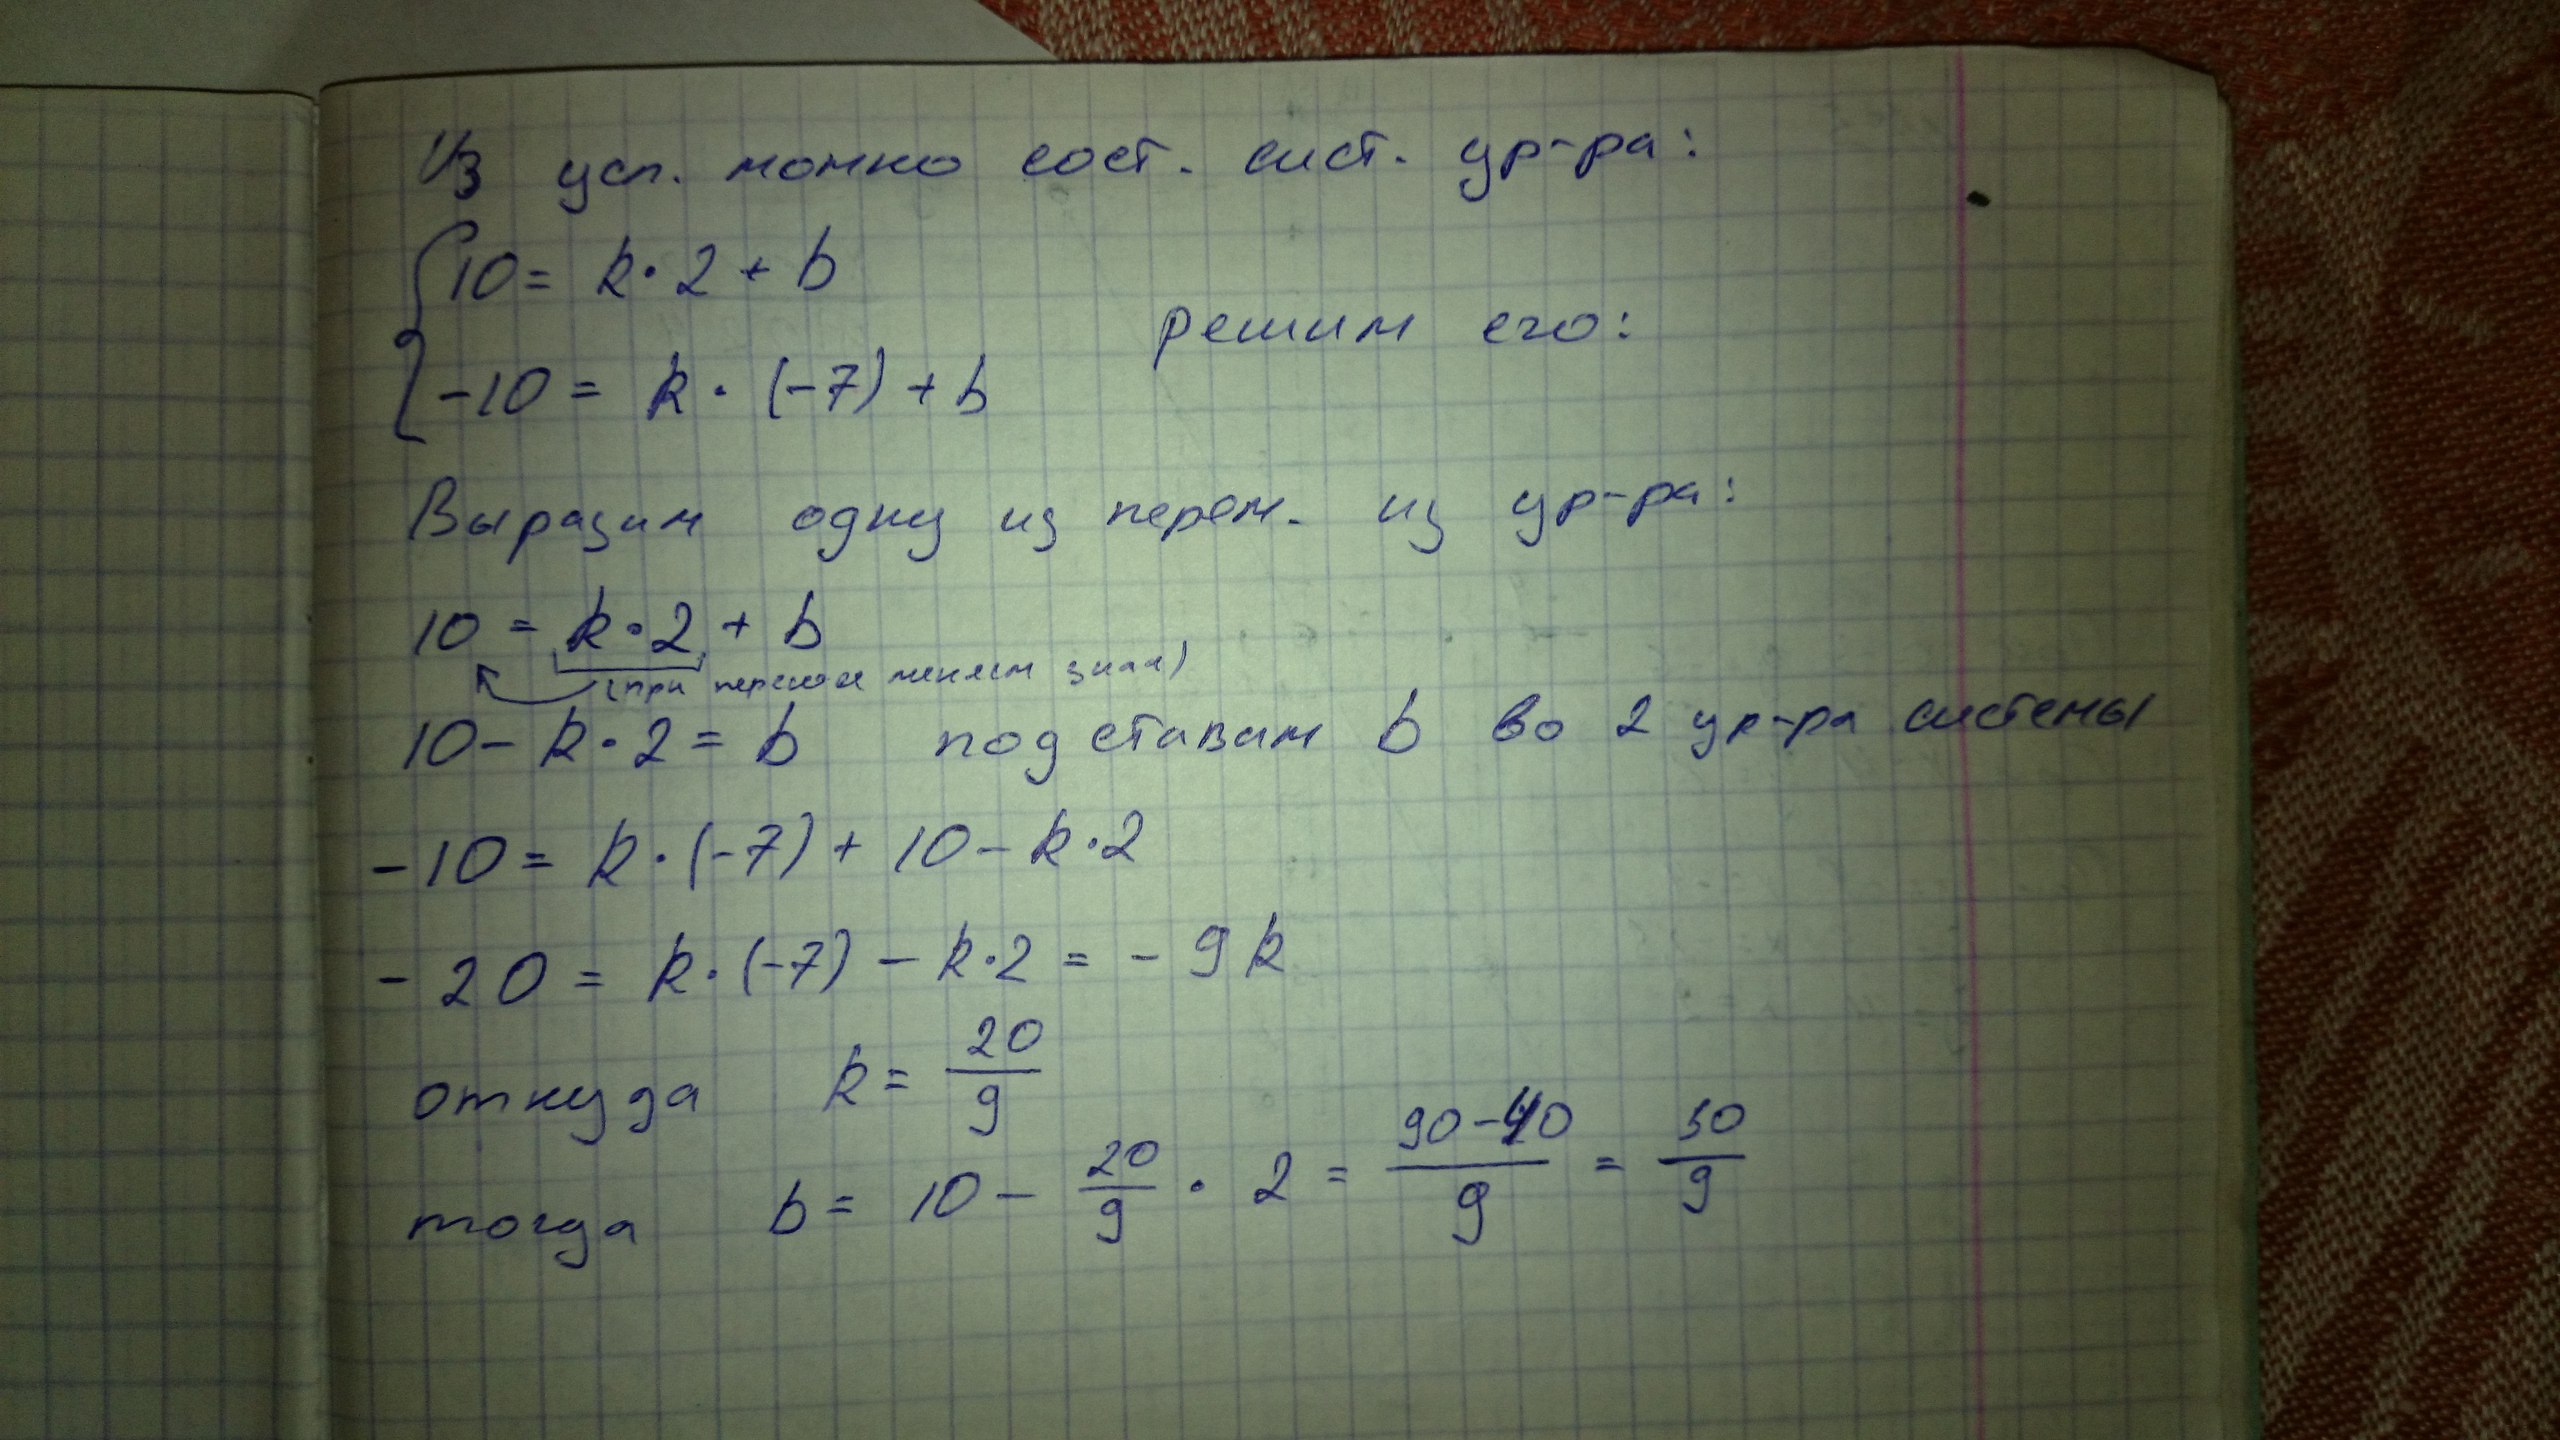 Из усл. можно сост. сист. ур-ра:
10 = k · 2 + b
решим его:
-10 = k · (-7) + b
Выразим одну из перем. из ур-ра:
10 = k · 2 + b
(при переносе меняем знак)
10 - k · 2 = b подставим b во 2 ур-ра системы
-10 = k · (-7) + 10 - k · 2
-20 = k · (-7) - k · 2 = -9k
откуда k = 20/9
тогда b = 10 - 20/9 · 2 = (90-40)/9 = 50/9